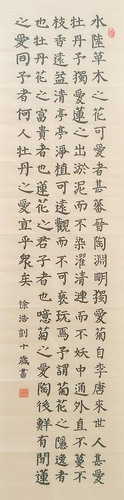 水陸草木之花可愛者甚蕃晉陶淵明獨愛菊自李唐來世人甚愛
牡丹予獨愛蓮之出淤泥而不染濯清漣而不妖中通外直不蔓不
枝香遠益清亭亭淨植可遠觀而不可褻玩焉予謂菊花之隱逸者
也牡丹花之富貴者也蓮花之君子者也噫菊之愛陶後鮮有聞蓮
之愛同予者何人牡丹之愛宜乎衆矣 徐浩 十歲書